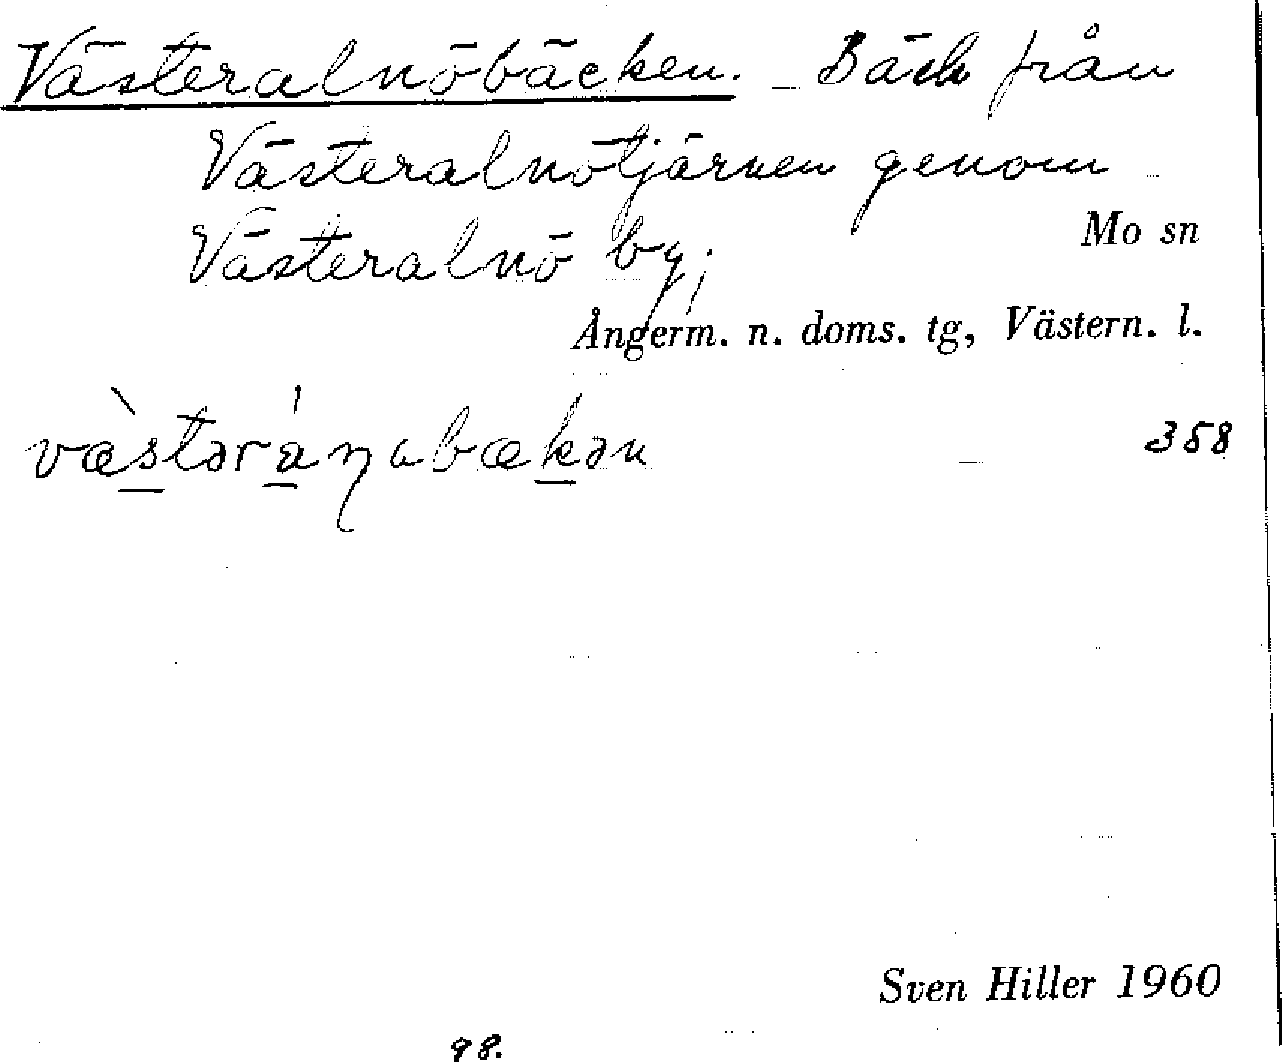 Västeralnöbäcken. Bäck från
Västeralnötjärnen genom
Västeralnö by;
Mo sn
Ångerm. n. doms. tg, Västern. l.
væ̀stəráηabækən
358
Sven Hiller 1960
98.